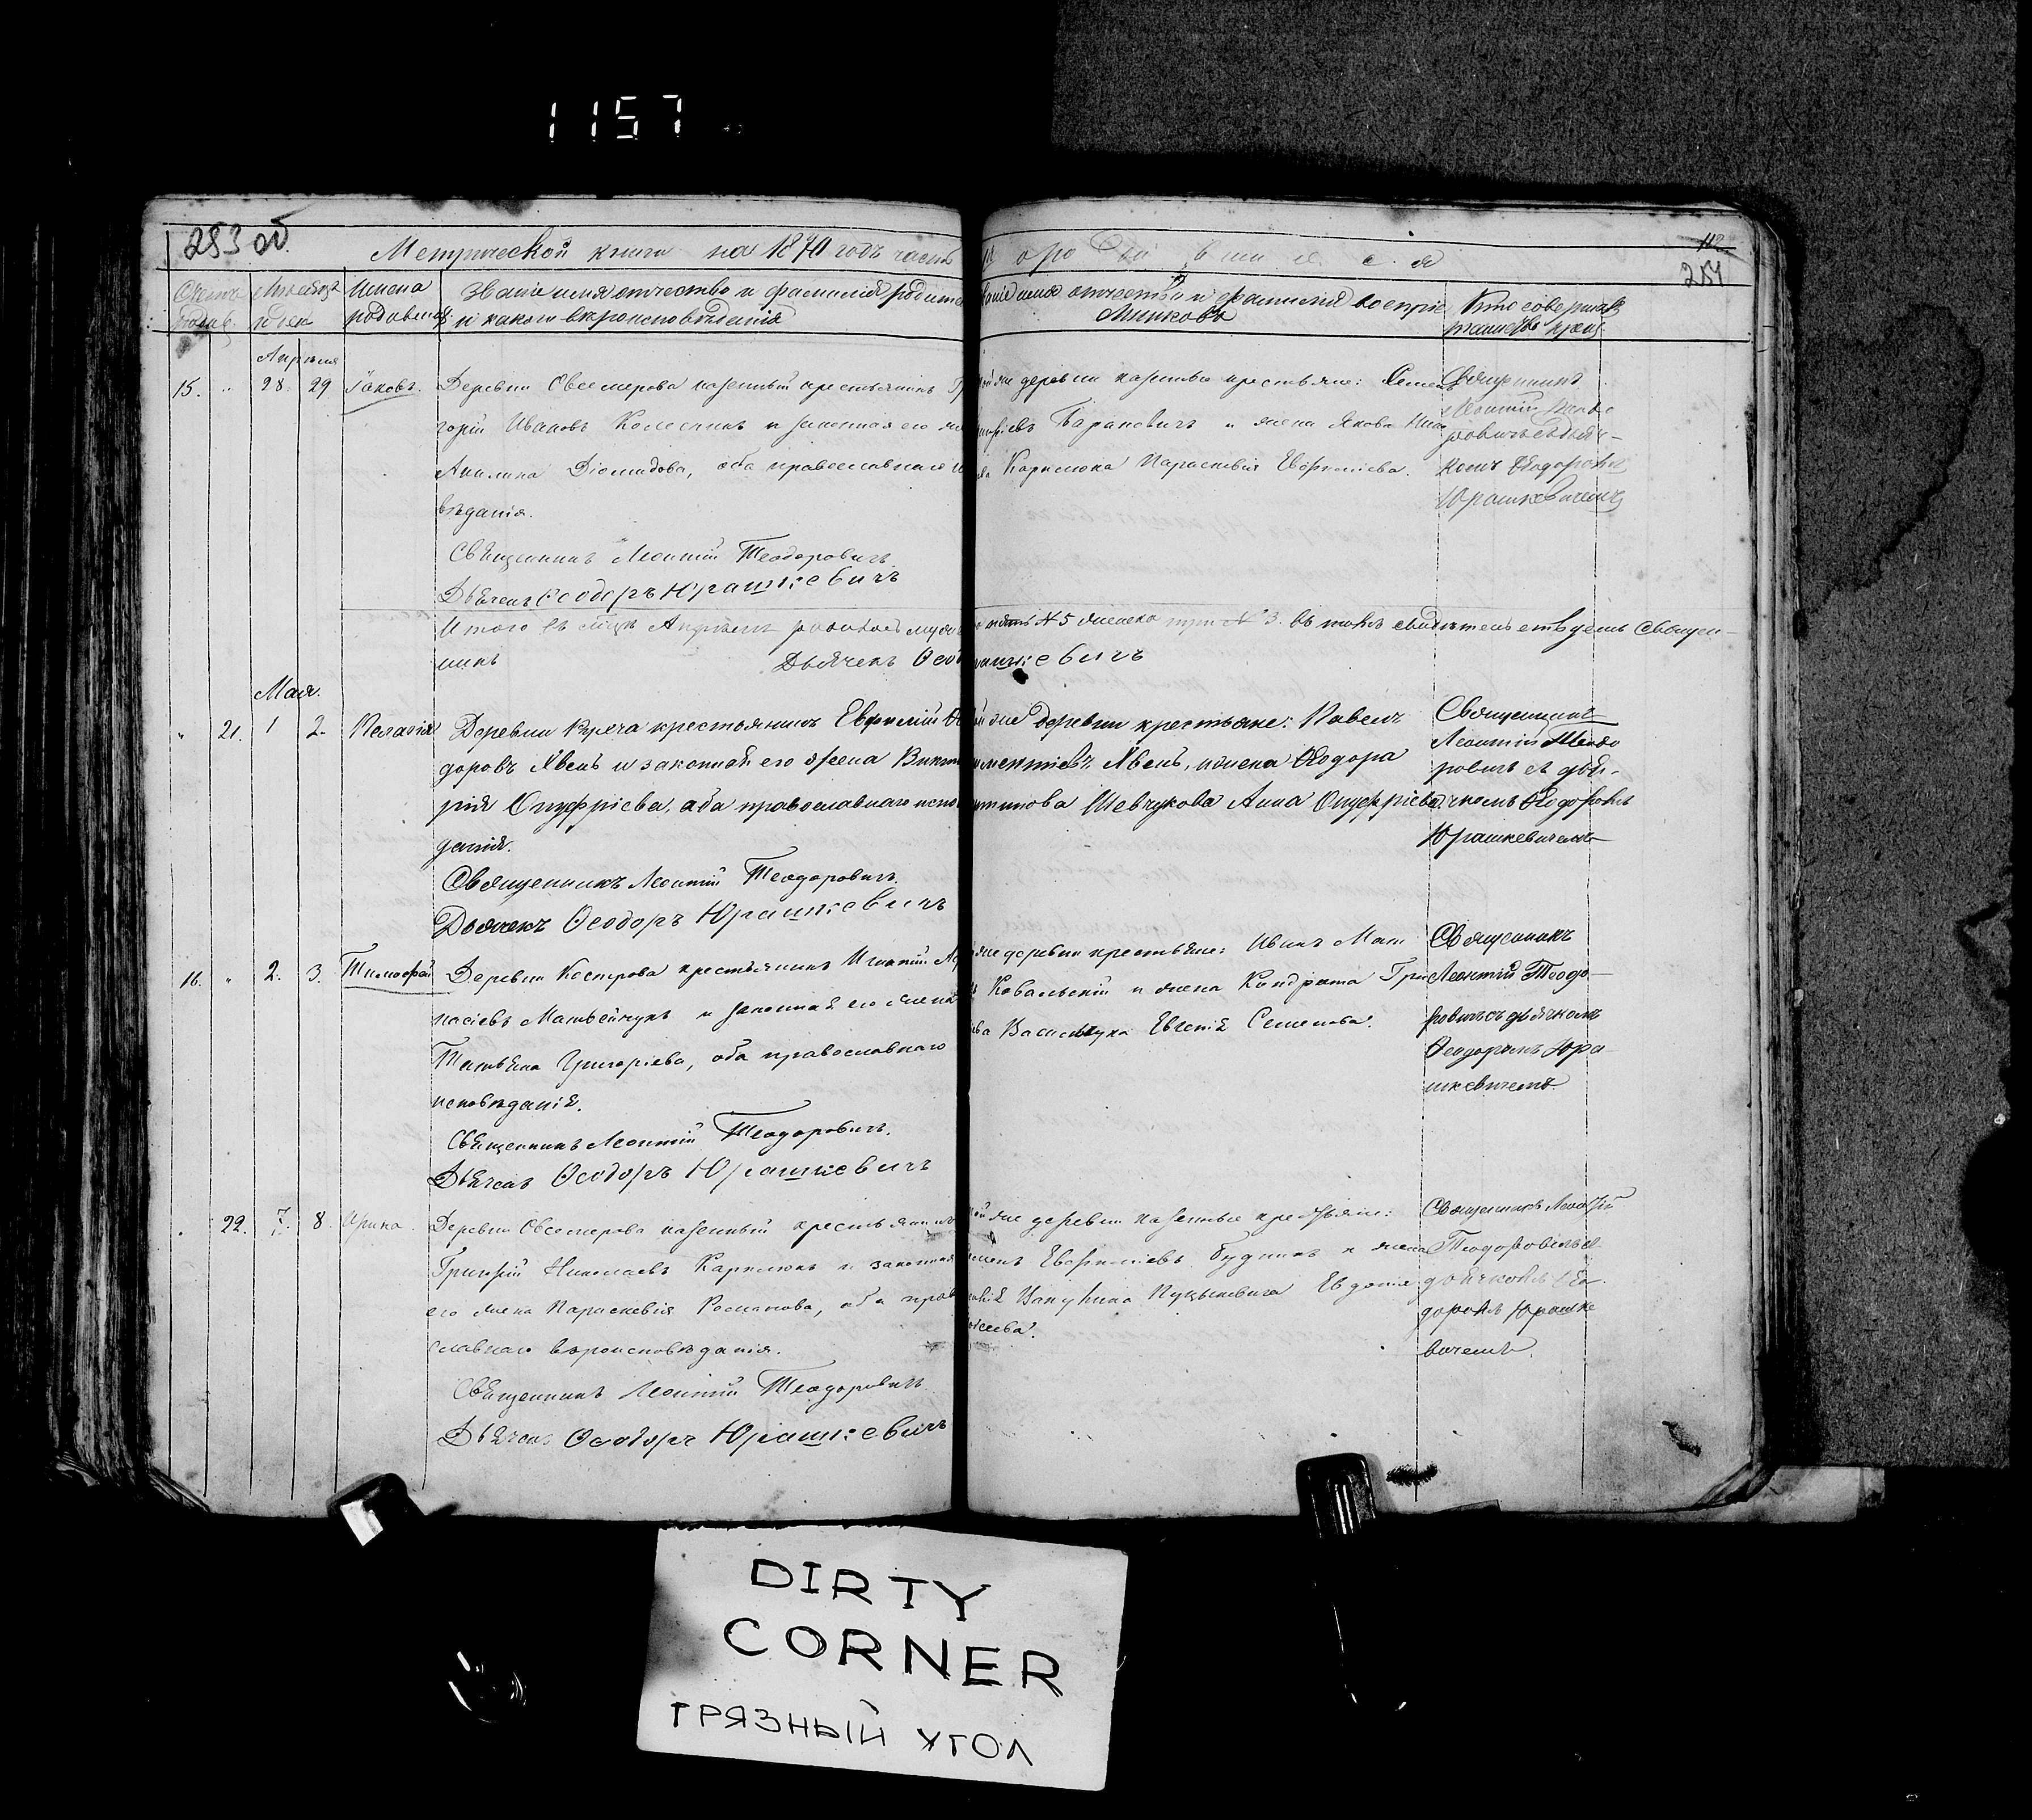 1157
283 об.
112
284
Метрической книги на 1870 годъ часть
о родившихся
Счетъ родив.
Мѣсяцъ и день
Имена родившихъ
Званіе имя отчество и фамилія родите
и какого вѣроисповѣданія
Званіе имя отчество и фамилія воспріе
мниковъ
Кто совершалъ
таинство крещ
Апрѣля
15. " 28. 29 Іаковъ.
крестьянинъ Гр
горій Ивановъ и законная его же
Акилина Діомидова, оба православнаго и
вѣданія.
Священникъ Леонтій Теодоровичъ
Дьячекъ Ѳеодоръ Юрашкевичъ
ой же деревни казенные крестьяне: Семенъ
Барановичъ и жена Якова
Карплюка Параскевія Евфиміева.
Священникъ
Леонтій Теодо
ровичъ съ дьяч-
комъ Ѳеодоромъ
Юрашкевичемъ
Итого въ мцѣ Апрѣлѣ родилось муж
№ 5 женска № 3. въ томъ свидѣтельствуемъ Священ-
никъ Дьячекъ Ѳеод
рашкевичъ
Мая.
" 21. 1 2. Пелагія
Деревни крестьянинъ Евфимій Ѳе
доровъ Явень и законная его жена Викто
рія Онуфріева, оба православнаго испо
данія.
Священникъ Леонтій Теодоровичъ.
Дьячекъ Ѳеодоръ Юрашкевичъ
й же деревни крестьяне: Павелъ
ментіевъ Явень, и жена Ѳеодора
Шевчукова Анна Онуфріева.
Священникъ
Леонтій Теодо
ровичъ съ дья-
чкомъ Ѳеодоромъ
Юрашкевичемъ
16. " 2. 3. Тимофей
Деревни крестьянинъ Игнатій
насіевъ Матвейчукъ и законная его жена
Татьяна Григоріева, оба православнаго
исповѣданія.
Священникъ Леонтій Теодоровичъ.
Дьячекъ Ѳеодоръ Юрашкевичъ
же деревни крестьяне: Иванъ Мат
Ковальскій и жена Кондрата Гри
ева Васильчука Евгенія Семенова.
Священникъ
Леонтій Теодо-
ровичъ съ дьячкомъ
Ѳеодоромъ Юра-
шкевичемъ
" 22. 7. 8. Ирина.
казенный крестьянинъ
Григорій Николаевъ Карплюкъ и законная
его жена Параскевія Романова, оба прав
славнаго вѣроисповѣданія.
Священникъ Леонтій Теодоровичъ.
Дьячекъ Ѳеодоръ Юрашкевичъ
ой же деревни казенные крестьяне:
Евфиміевъ Будникъ и жена
Евдокія
Священникъ Леонтій
Теодоровичъ съ
дьячкомъ Ѳео-
доромъ Юрашке
вичемъ.
DIRTY
CORNER
ГРЯЗНЫЙ УГОЛ